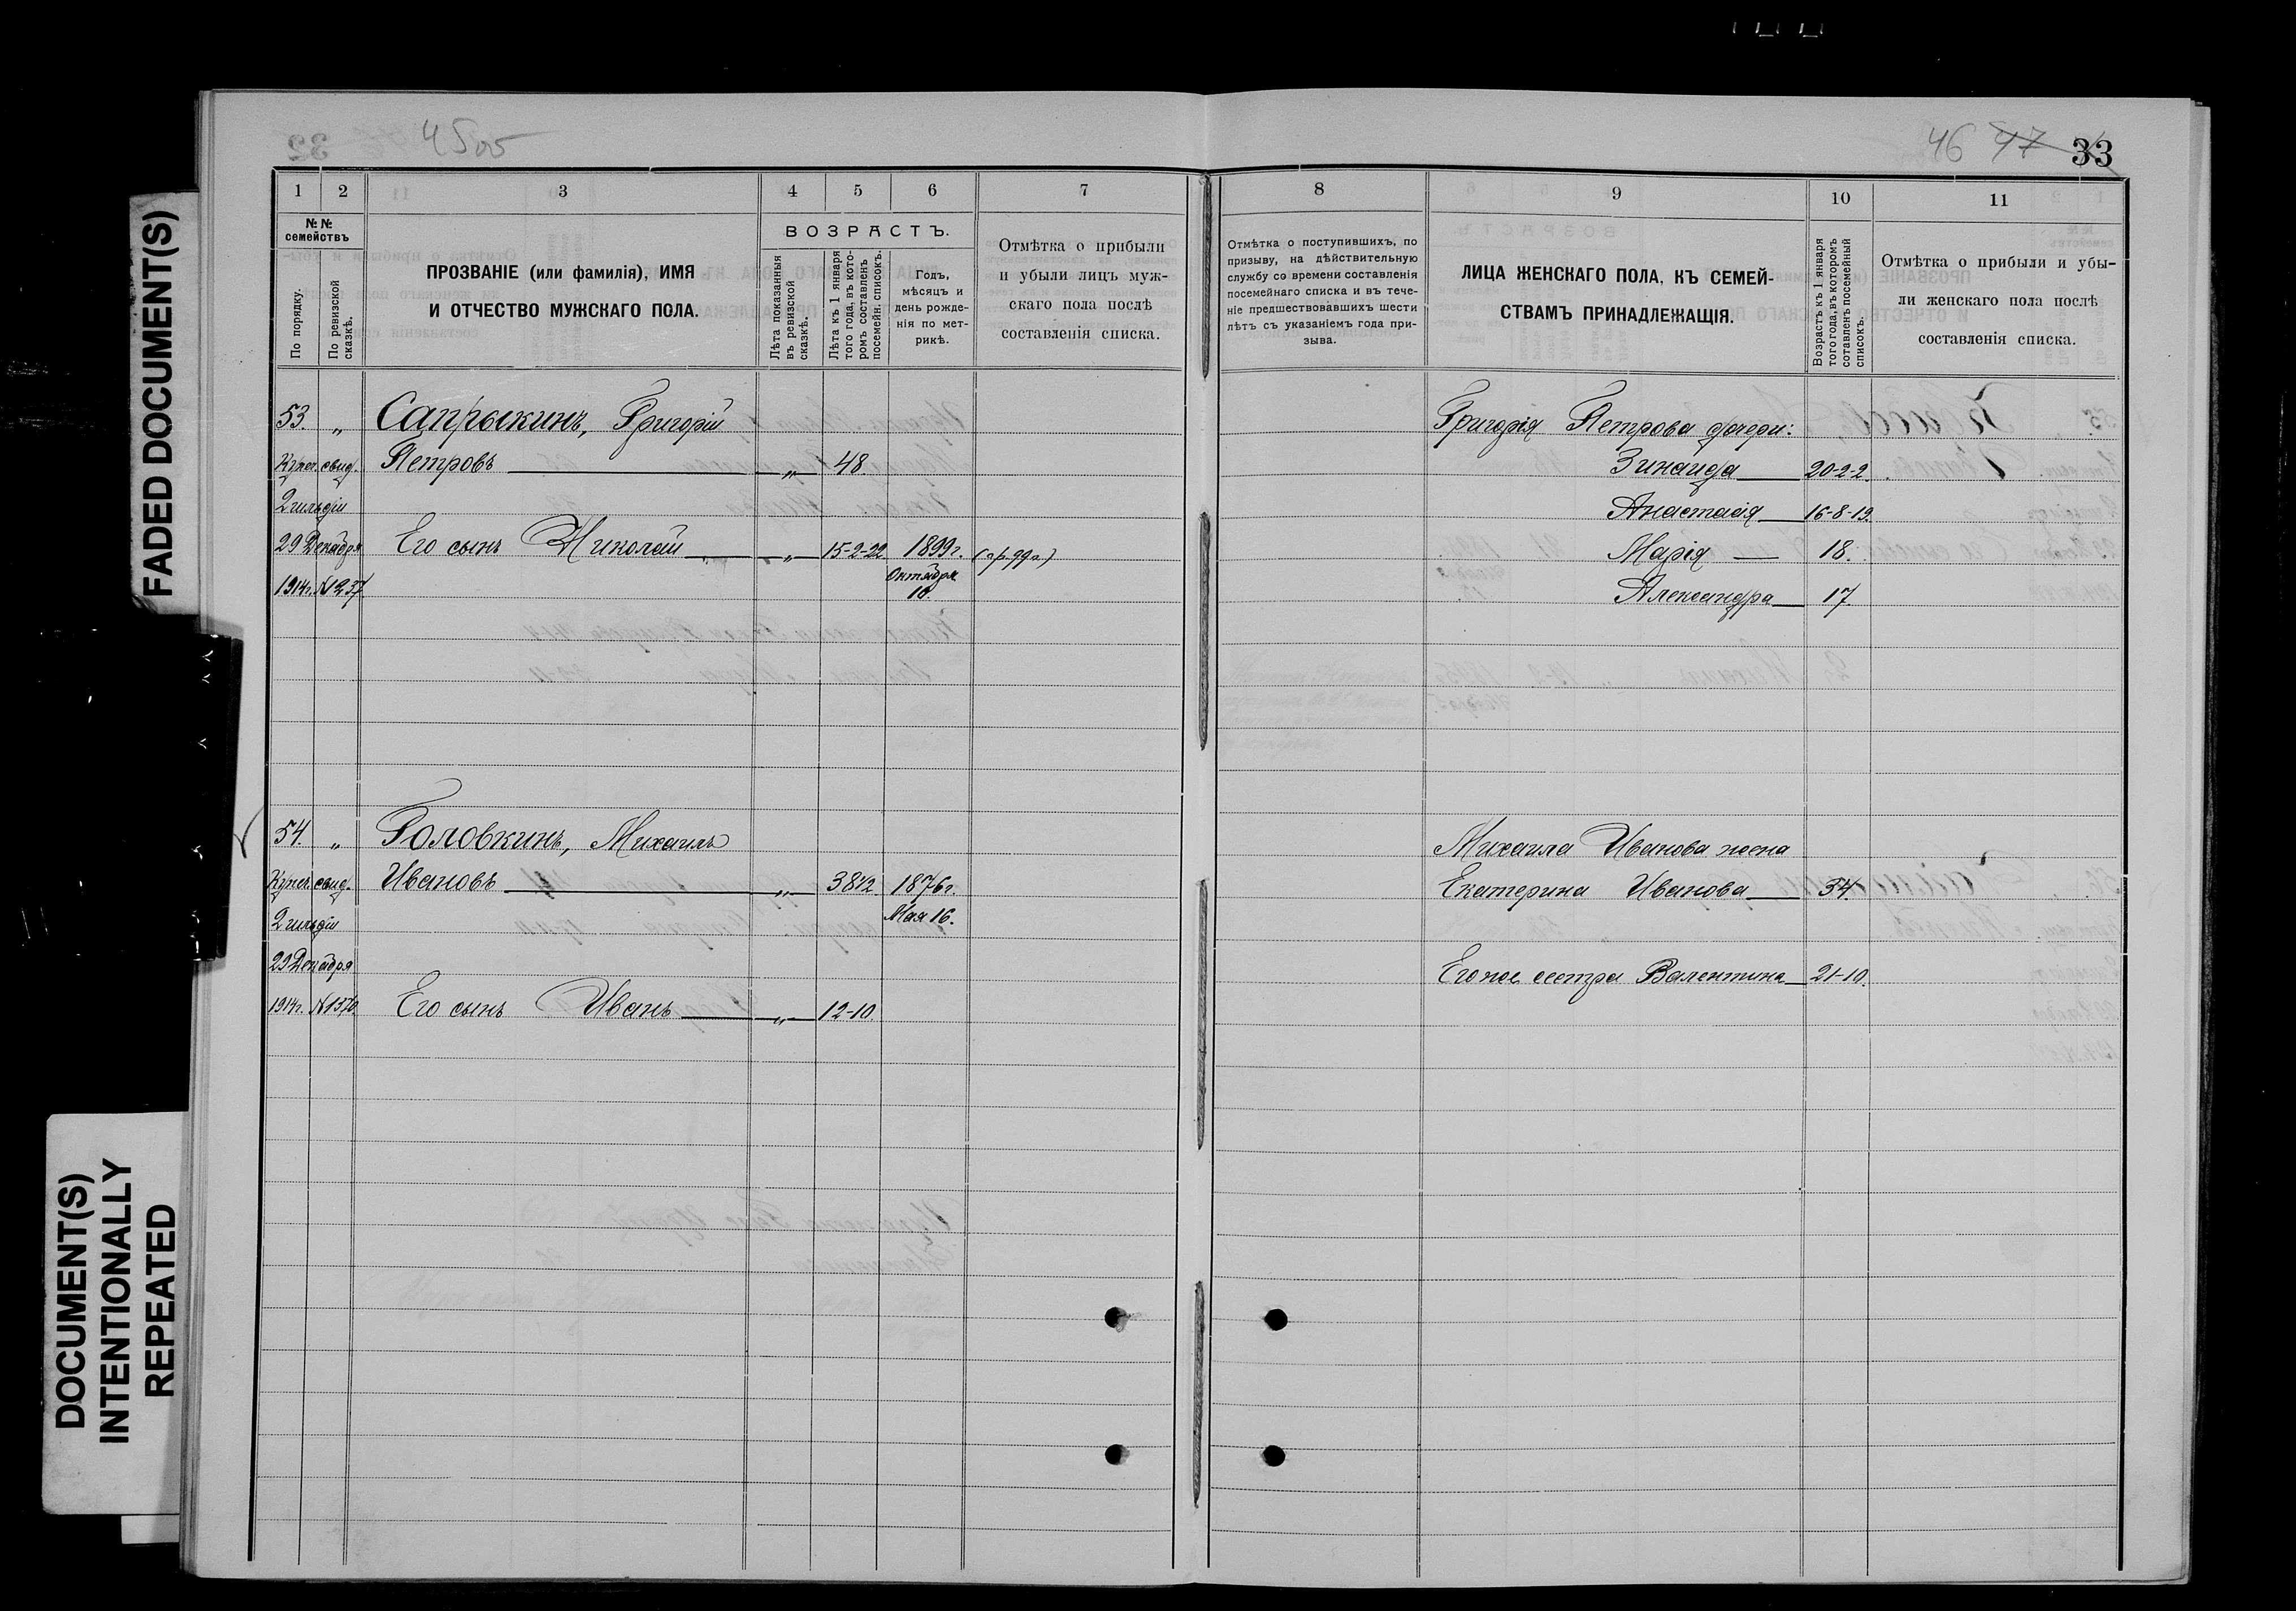 FADED DOCUMENT(S)
DOCUMENT(S)
INTENTIONALLY
REPEATED
45об
46 47 33
1 2 3 4 5 6 7
№№
семействъ
По порядку.
По ревизской
сказкѣ.
ПРОЗВАНІЕ (или фамилія), ИМЯ
И ОТЧЕСТВО МУЖСКАГО ПОЛА.
ВОЗРАСТЪ.
Лѣта показанныя
въ ревизской
сказкѣ.
Лѣта къ 1 января
того года, въ кото-
ромъ составленъ
посемейн. списокъ.
Годъ,
мѣсяцъ и
день рожде-
нія по мет-
рикѣ.
Отмѣтка о прибыли
и убыли лицъ муж-
скаго пола послѣ
составленія списка.
53. „ Сапрыкинъ, Григорій
Купеч. свид. Петровъ „ 48.
2 гильдіи
29 Декабря Его сынъ Николай „ 15-2-22 1899 г.
1914 г. №1237. Октября
10.
54. „ Головкинъ, Михаилъ
Купеч. свид. Ивановъ „ 38 1/2 1876 г.
2 гильдіи Мая 16.
29 Декабря
1914 г. №1570. Его сынъ Иванъ „ 12-10.
8 9 10 11
Отмѣтка о поступившихъ, по
призыву, на дѣйствительную
службу со времени составленія
посемейнаго списка и въ тече-
ніе предшествовавшихъ шести
лѣтъ съ указаніемъ года при-
зыва.
ЛИЦА ЖЕНСКАГО ПОЛА, КЪ СЕМЕЙ-
СТВАМЪ ПРИНАДЛЕЖАЩІЯ.
Возрастъ къ 1 января
того года, въ которомъ
составленъ посемейный
списокъ.
Отмѣтка о прибыли и убы-
ли женскаго пола послѣ
составленія списка.
Григорія Петрова дочери:
Зинаида 20-2-2.
Анастасія 16-8-19.
Марія 18.
Александра 17.
Михаила Иванова жена
Екатерина Иванова 34.
Его же сестра Валентина 21-10.